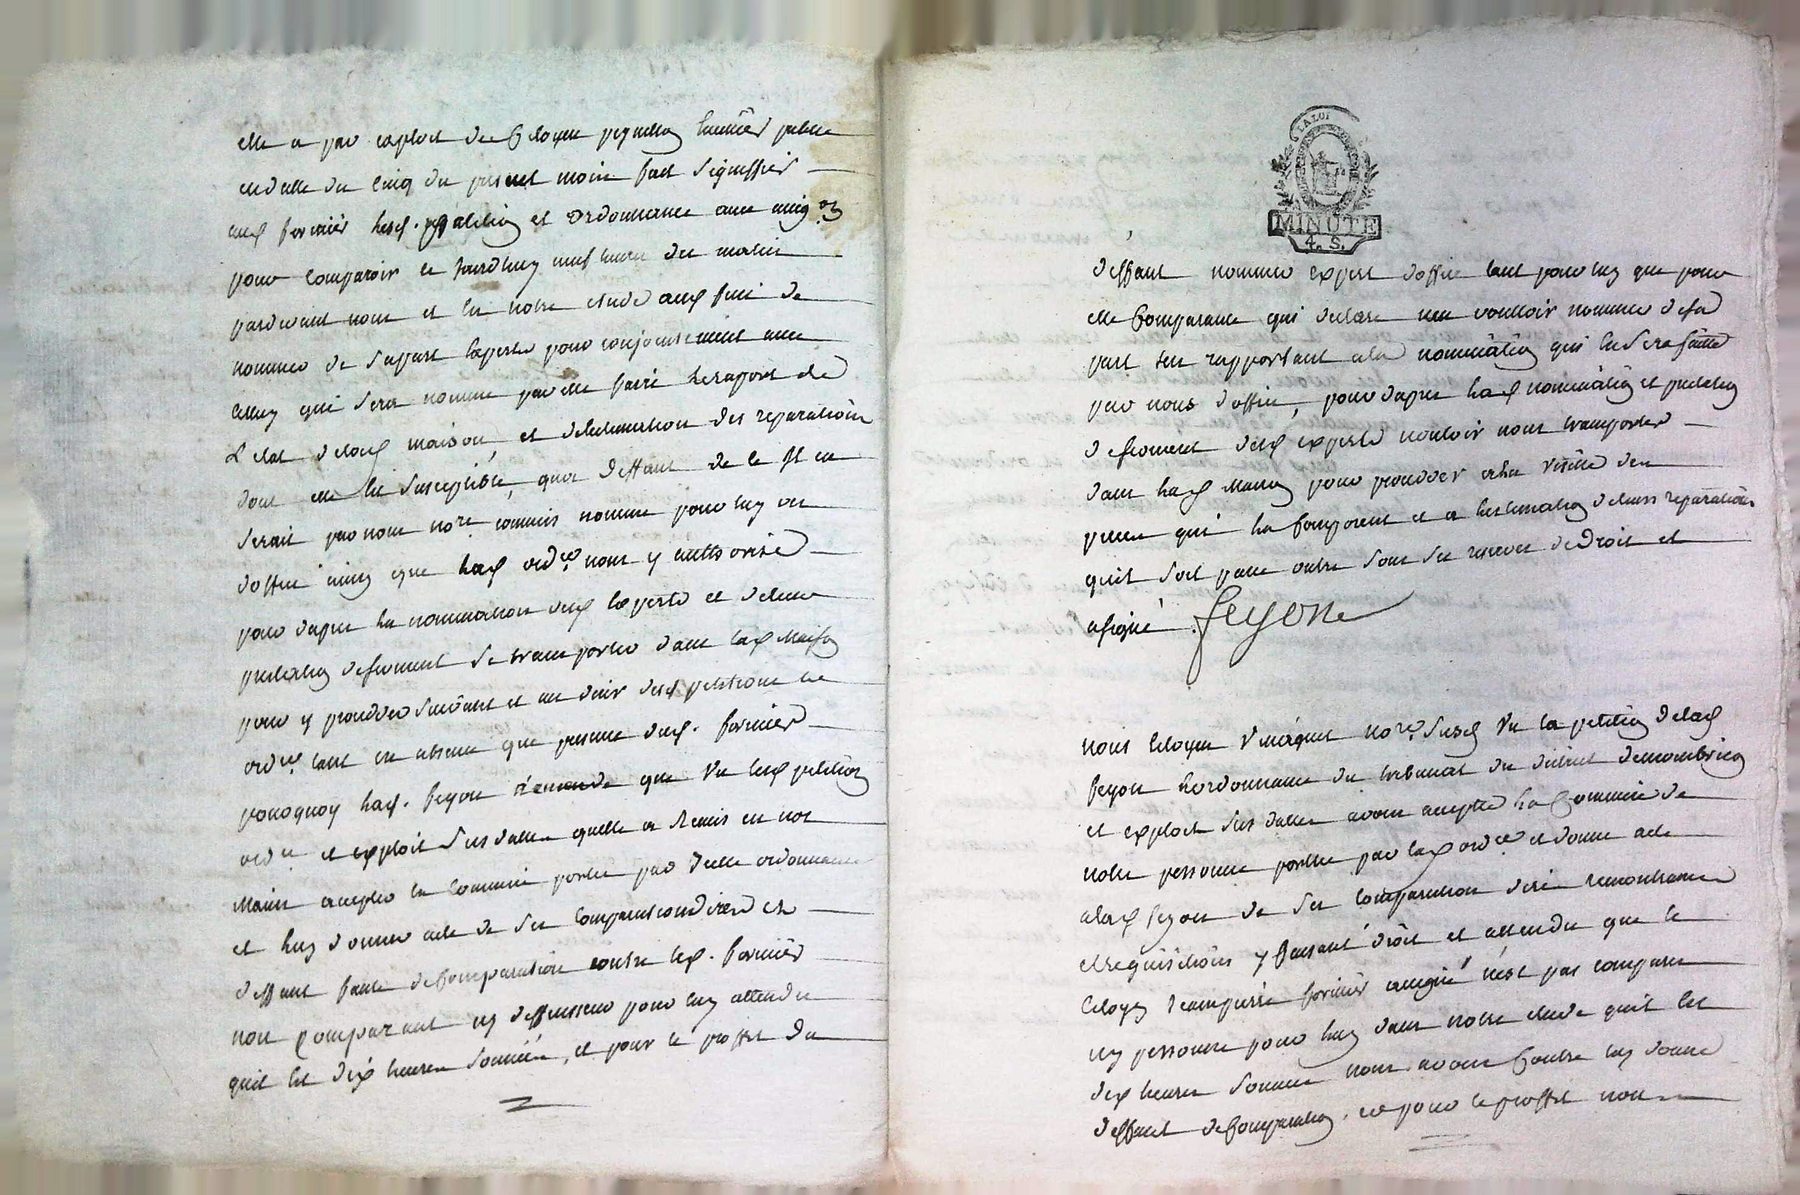 elle a par exploit du Citoyen huissier public
en datte du cinq du present mois fait signiffier
aud fermier lesd. petition et ordonnance avec assig.on
pour comparoir ce jourdhuy neuf heures du matin
pardevant nous et en notre etude aux fins de
nommer de sa part experts pour conjointement avec
celluy qui sera nommé par elle faire le raport de
L'etat de lad maison, et delestimation des reparations
dont elle est susceptible, qu'a deffaut de ce il en
serait par nous no.re commis nommé pour luy un
doffice ainsy que lad ord.ce nous y authorise
pour dapres la nomination desd experts et deleur
prestation deserment se transporter dans lad Maison
pour y proceder suivant et au desir desd petitions et
ord.ce tant en absence que presence dud. fermier
pourquoy lad. feyou demande que Vu lesd petition
ord.ce et exploit susdattes quelle a remis en nos
Mains accepter la commission portée par ladite ordonnance
et luy donner acte de sa comparution dires et
deffaut faute de Comparution contre led. fermier
non Comparant ny deffenseur pour luy attendu
quil est dix heures sonnées, et pour le proffit du
LA LOI
MINUTE
4. S.
deffaut nommer expert doffice tant pour luy que pour
elle Comparante qui declare ne vouloir nommer desa
part sen rapportant ala nomination qui en sera faitte
par nous doffice, pour dapres lad nomination et prestation
deserment desd experts vouloir nous transporter
dans lad Maison pour proceder a la visitte des
pieces qui la Composent et a lestimation deleurs reparations
quil soit passé outre sous ses reserves de Droit et
asigné. feyou
nous Citoyen no.re susd Vu la petition delad
feyou lordonnance du tribunal du district demontbrison
et exploit sus dattés avons accepté la Commission de
notre personne portée par lad ord.ce et donné acte
alad feyou de sa comparution dires remontrances
et requisitions y faisant droit et attendu que le
Citoyen Jeanpierre fermier assigné n'est pas comparu
ny personne pour luy dans notre etude quil est
dix heures sonnées nous avons Contre luy donné
deffaut de Comparution, et pour le proffit nous